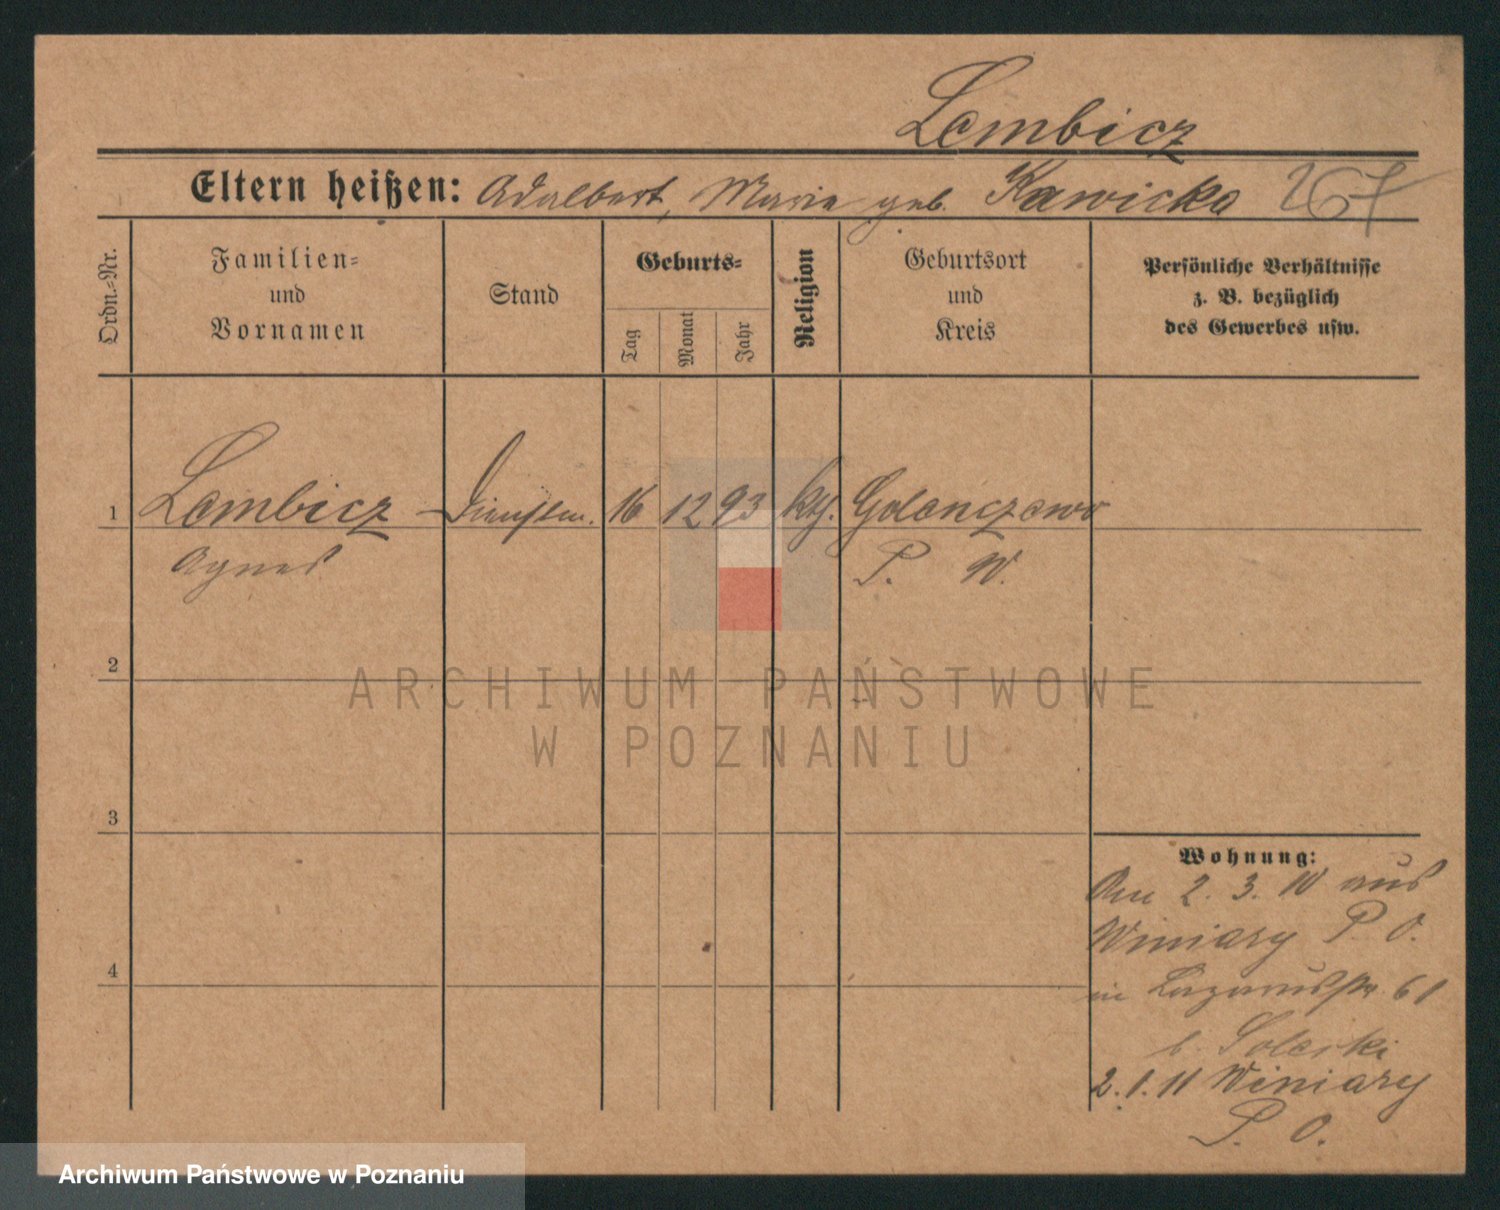 Lembicz
Eltern heißen: Adalbert, Marie geb. Kawicka 267
Ordn.-Nr.
Familien- und Vornamen
Stand
Geburts-
Tag
Monat
Jahr
Religion
Geburtsort und Kreis
Persönliche Verhältnisse
z. B. bezüglich
des Gewerbes usw.
1 Lembicz Dienstm. 16 12 93 kth. Golenczewo
Agnes P. W.
2
3
4
Wohnung:
Am 2. 3. 10 aus
Winiary P. O.
in Lazarusstr. 61
b.
2.1.11 Winiary
P. O.
ARCHIWUM PAŃSTWOWE
W POZNANIU
Archiwum Państwowe w Poznaniu